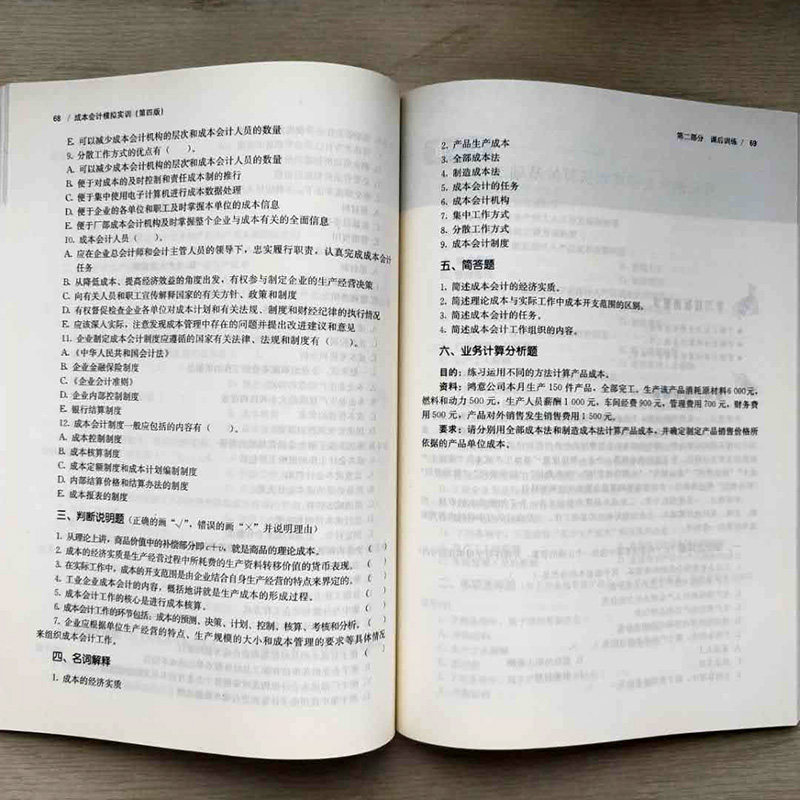 68 / 成本会计模拟实训（第四版）
E. 可以减少成本会计机构的层次和成本会计人员的数量
9. 分散工作方式的优点有（　　）。
A. 可以减少成本会计机构的层次和成本会计人员的数量
B. 便于对成本的及时控制和责任成本制的推行
C. 便于集中使用电子计算机进行成本数据处理
D. 便于企业的各单位和职工及时掌握本单位的成本信息
E. 便于厂部成本会计机构及时掌握整个企业与成本有关的全面信息
10. 成本会计人员（　　）。
A. 应在企业总会计师和会计主管人员的领导下，忠实履行职责，认真完成成本会计
任务
B. 从降低成本、提高经济效益的角度出发，有权参与制定企业的生产经营决策
C. 向有关人员和职工宣传解释国家的有关方针、政策和制度
D. 有权督促检查企业各单位对成本计划和有关法规、制度和财经纪律的执行情况
E. 应该深入实际，注意发现成本管理中存在的问题并提出改进建议和意见
11. 企业制定成本会计制度应遵循的国家有关法律、法规和制度有（　　）。
A.《中华人民共和国会计法》
B. 企业金融保险制度
C.《企业会计准则》
D. 企业内部控制制度
E. 银行结算制度
12. 成本会计制度一般应包括的内容有（　　）。
A. 成本控制制度
B. 成本核算制度
C. 成本定额制度和成本计划编制制度
D. 内部结算价格和结算办法的制度
E. 成本报表的制度
三、判断说明题（正确的画“√”，错误的画“×”并说明理由）
1. 从理论上讲，商品价值中的补偿部分即c+v，就是商品的理论成本。（　　）
2. 成本的经济实质是生产经营过程中所耗费的生产资料转移价值的货币表现。（　　）
3. 在实际工作中，成本的开支范围是由企业结合自身生产经营的特点来界定的。（　　）
4. 工业企业成本会计的内容，概括地讲就是生产成本的形成过程。（　　）
5. 成本会计工作的核心是进行成本核算。（　　）
6. 成本会计工作的环节包括：成本的预测、决策、计划、控制、核算、考核和分析。（　　）
7. 企业应根据单位生产经营的特点、生产规模的大小和成本管理的要求等具体情况
来组织成本会计工作。（　　）
四、名词解释
1. 成本的经济实质
第二部分　课后训练 / 69
2. 产品生产成本
3. 全部成本法
4. 制造成本法
5. 成本会计的任务
6. 成本会计机构
7. 集中工作方式
8. 分散工作方式
9. 成本会计制度
五、简答题
1. 简述成本会计的经济实质。
2. 简述理论成本与实际工作中成本开支范围的区别。
3. 简述成本会计的任务。
4. 简述成本会计工作组织的内容。
六、业务计算分析题
目的：练习运用不同的方法计算产品成本。
资料：鸿意公司本月生产150件产品，全部完工。生产该产品消耗原材料6 000元，
燃料和动力500元，生产人员薪酬1 000元，车间经费900元，管理费用700元，财务费
用500元，产品对外销售发生销售费用1 500元。
要求：请分别用全部成本法和制造成本法计算产品成本，并确定制定产品销售价格所
依据的产品单位成本。